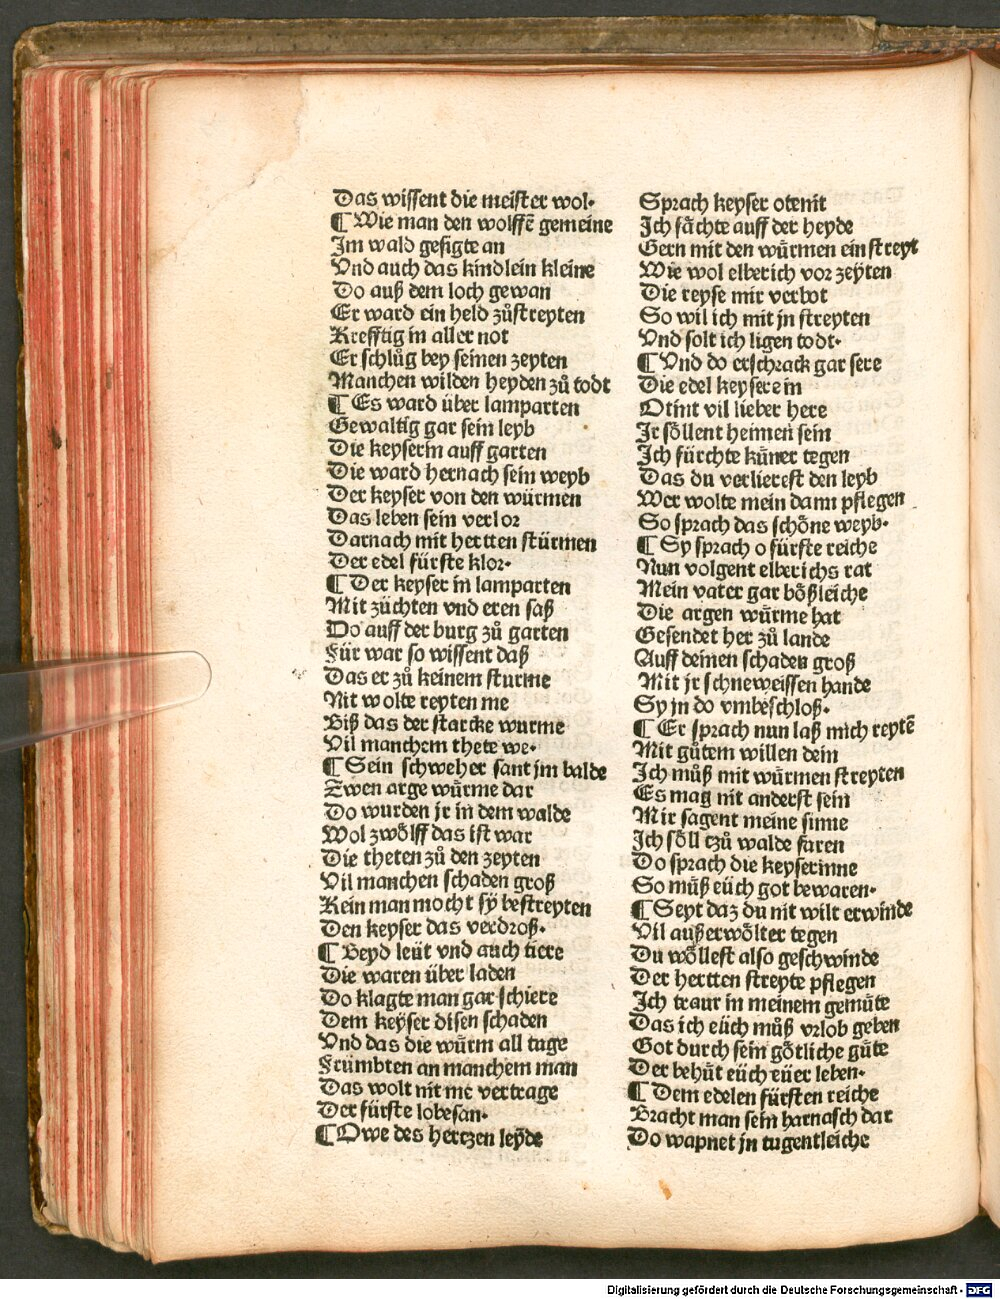 Das wissent die meister wol·
¶ Wie man den wolffē gemeine
Im wald gesigte an
Vnd auch das kindlein kleine
Do auß dem loch gewan
Er ward ein held zůstreyten
Krefftig in aller not
Er schlůg bey seinen zeyten
Manchen wilden heyden zů todt
¶ Es ward über lamparten
Gewaltig gar sein leyb
Die keyserin auff garten
Die ward hernach sein weyb
Der keyser von den würmen
Das leben sein verlor
Darnach mit hertten stürmen
Der edel fürste klor·
¶ Der keyser in lamparten
Mit züchten vnd eren saß
Do auff der burg zů garten
Für war so wissent daß
Das er zů keinem sturme
Nit wolte reyten me
Biß das der starcke wurme
Vil manchem thete we·
¶ Sein schweher sant jm balde
Zwen arge würme dar
Do wurden jr in dem walde
Wol zwölff das ist war
Die theten zů den zeyten
Vil manchen schaden groß
Kein man mocht sÿ bestreyten
Den keyser das verdroß·
¶ Beyd leüt vnd auch tiere
Die waren über laden
Do klagte man gar schiere
Dem keÿser disen schaden
Vnd das die würm all tage
Frümbten an manchem man
Das wolt nit me vertrage
Der fürste lobesan·
¶ Owe des hertzen leÿde
Sprach keyser otenit
Ich fächte auff der heyde
Gern mit den würmen ein streyt
Wie wol elberich vor zeÿten
Die reyse mir verbot
So wil ich mit jn streyten
Vnd solt ich ligen todt·
¶ Vnd do erschrack gar sere
Die edel keyserein
Otint vil lieber here
Ir söllent heimen sein
Ich fürchte küner tegen
Das du verlierest den leyb
Wer wolte mein dann pflegen
So sprach das schöne weyb·
¶ Sy sprach o fürste reiche
Nun volgent elberichs rat
Mein vater gar bößleiche
Die argen würme hat
Gesendet her zů lande
Auff deinen schaden groß
Mit jr schneweissen hande
Sy jn do vmbeschloß·
¶ Er sprach nun laß mich reytē
Mit gůtem willen dein
Ich můß mit würmen streyten
Es mag nit anderst sein
Mir sagent meine sinne
Ich söll tzů walde faren
Do sprach die keyserinne
So můß eüch got bewaren·
¶ Seyt daz du nit wilt erwinde
Vil außerwölter tegen
Du wöllest also geschwinde
Der hertten streyte pflegen
Ich traur in meinem gemüte
Das ich eüch můß vrlob geben
Got durch sein götliche güte
Der behüt eüch eüer leben·
¶ Dem edelen fürsten reiche
Bracht man sein harnasch dar
Do wapnet jn tugentleiche
Digitalisierung gefördert durch die Deutsche Forschungsgemeinschaft - DFG